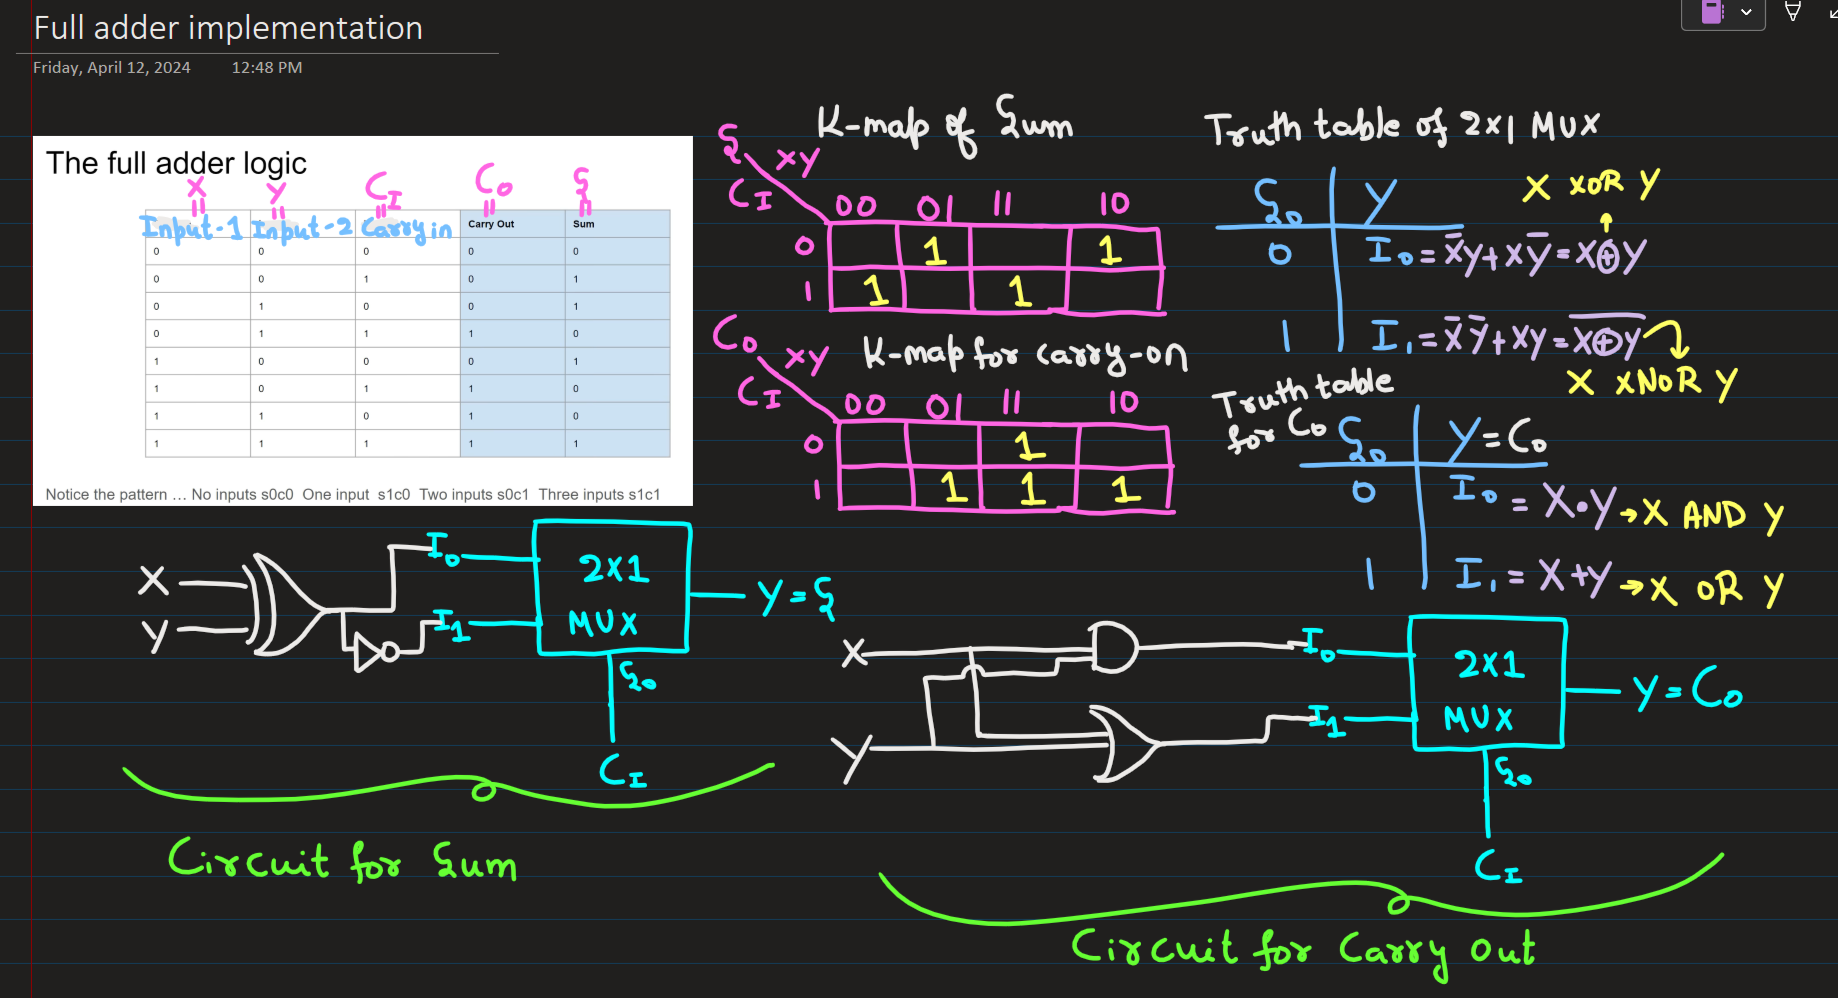 Full adder implementation
Friday, April 12, 2024 12:48 PM
The full adder logic
X Y C_I C_O S
Input-1 Input-2 Carry in Carry Out Sum
0 0 0 0 0
0 0 1 0 1
0 1 0 0 1
0 1 1 1 0
1 0 0 0 1
1 0 1 1 0
1 1 0 1 0
1 1 1 1 1
Notice the pattern ... No inputs s0c0 One input s1c0 Two inputs s0c1 Three inputs s1c1
K-map of Sum
S XY
C_I 00 01 11 10
0 1 1
1 1 1
K-map for carry-on
C_O XY
C_I 00 01 11 10
0 1
1 1 1 1
Truth table of 2x1 MUX
S_0 Y
X XOR Y
0 I_0 = X̅Y + XY̅ = X⊕Y
1 I_1 = X̅Y̅ + XY = \overline{X⊕Y}
X XNOR Y
Truth table
for C_O
S_0 Y = C_O
0 I_0 = X•Y → X AND Y
1 I_1 = X+Y → X OR Y
X
Y
I_0
I_1
2X1
MUX
Y = S
S_0
C_I
Circuit for Sum
X
Y
I_0
I_1
2X1
MUX
Y = C_O
S_0
C_I
Circuit for Carry Out